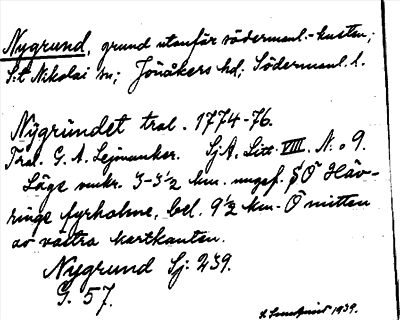 Nygrund, grund utanför södermanl.-kusten;
S:t Nikolai sn; Jönåkers hd; Södermanl. l.
Nÿgründet tral. 1774-76.
Tral. G. A. Lejmanker. SjA, Litt VIII, N:o 9.
Läge unkr. 3-3½ km. ungef. SÖ Häv-
ringe fyrholme, bel. 9½ km. Ö mitten
av västra kartkanten.
Nygrund Sj: 239.
G. 57.
1939.